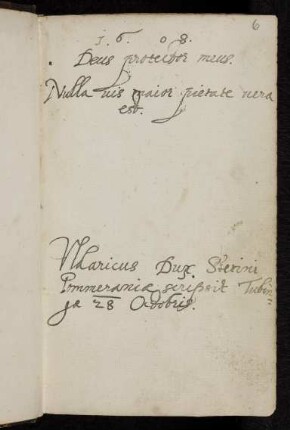 6
1. 6. 0. 8.
Deus protector meus.
Nulla vis maior pietate vera
est.
Vlaricus Dux Stetini
Pommeraniæ scripsit Tubin=
gæ 28 Octobris.